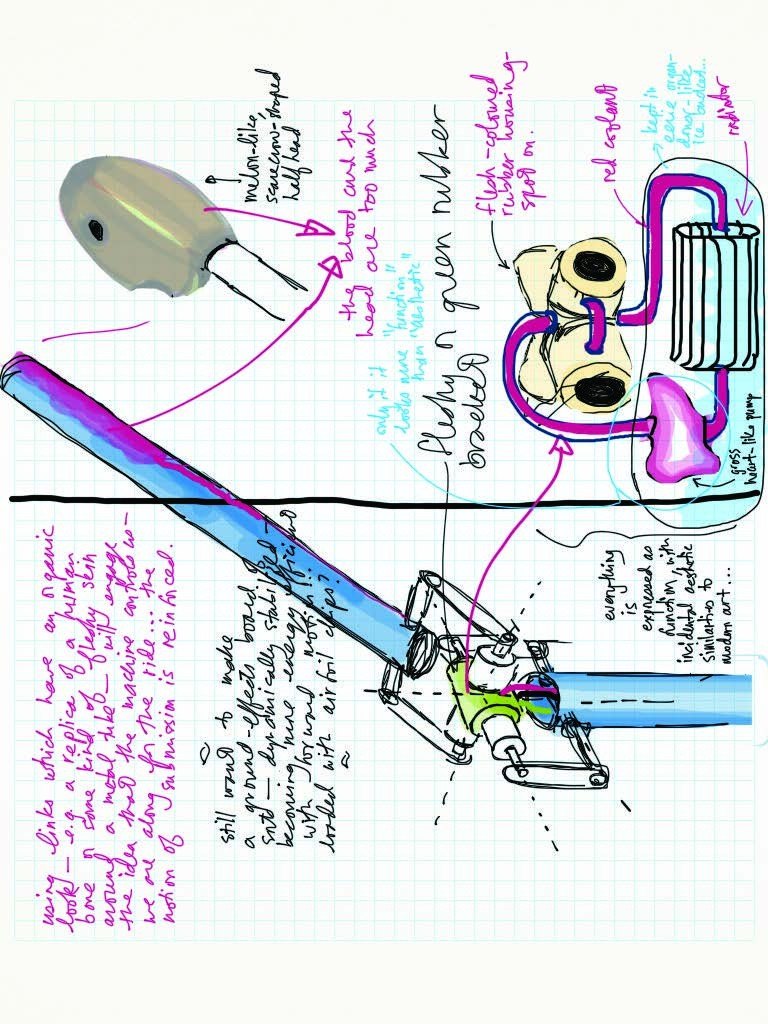 using links which have an organic
look — e.g. a replica of a human
bone or some kind of fleshy skin
around a metal like — will engage
the idea that the machine controls us —
we are along for the ride... the
notion of submission is reinforced.
still want to make
a ground-effects board of
sorts — dynamically stabilized —
becoming more energy efficient
with forward motion!..
loaded with airfoil chips?
melon-like,
scarecrow-shaped
half head
the blood and the
head are too much
only if it
looks more "function"
than "aesthetic"
fleshy or green rubber
bracket
flesh-coloured
rubber housing-
spot on.
everything
is
expressed as
function with
incidental aesthetic
similarities to
modern art...
red coolant
kept in
eerie organ-
donor-like
ice bucket...
radiator
gross
heart-like pump